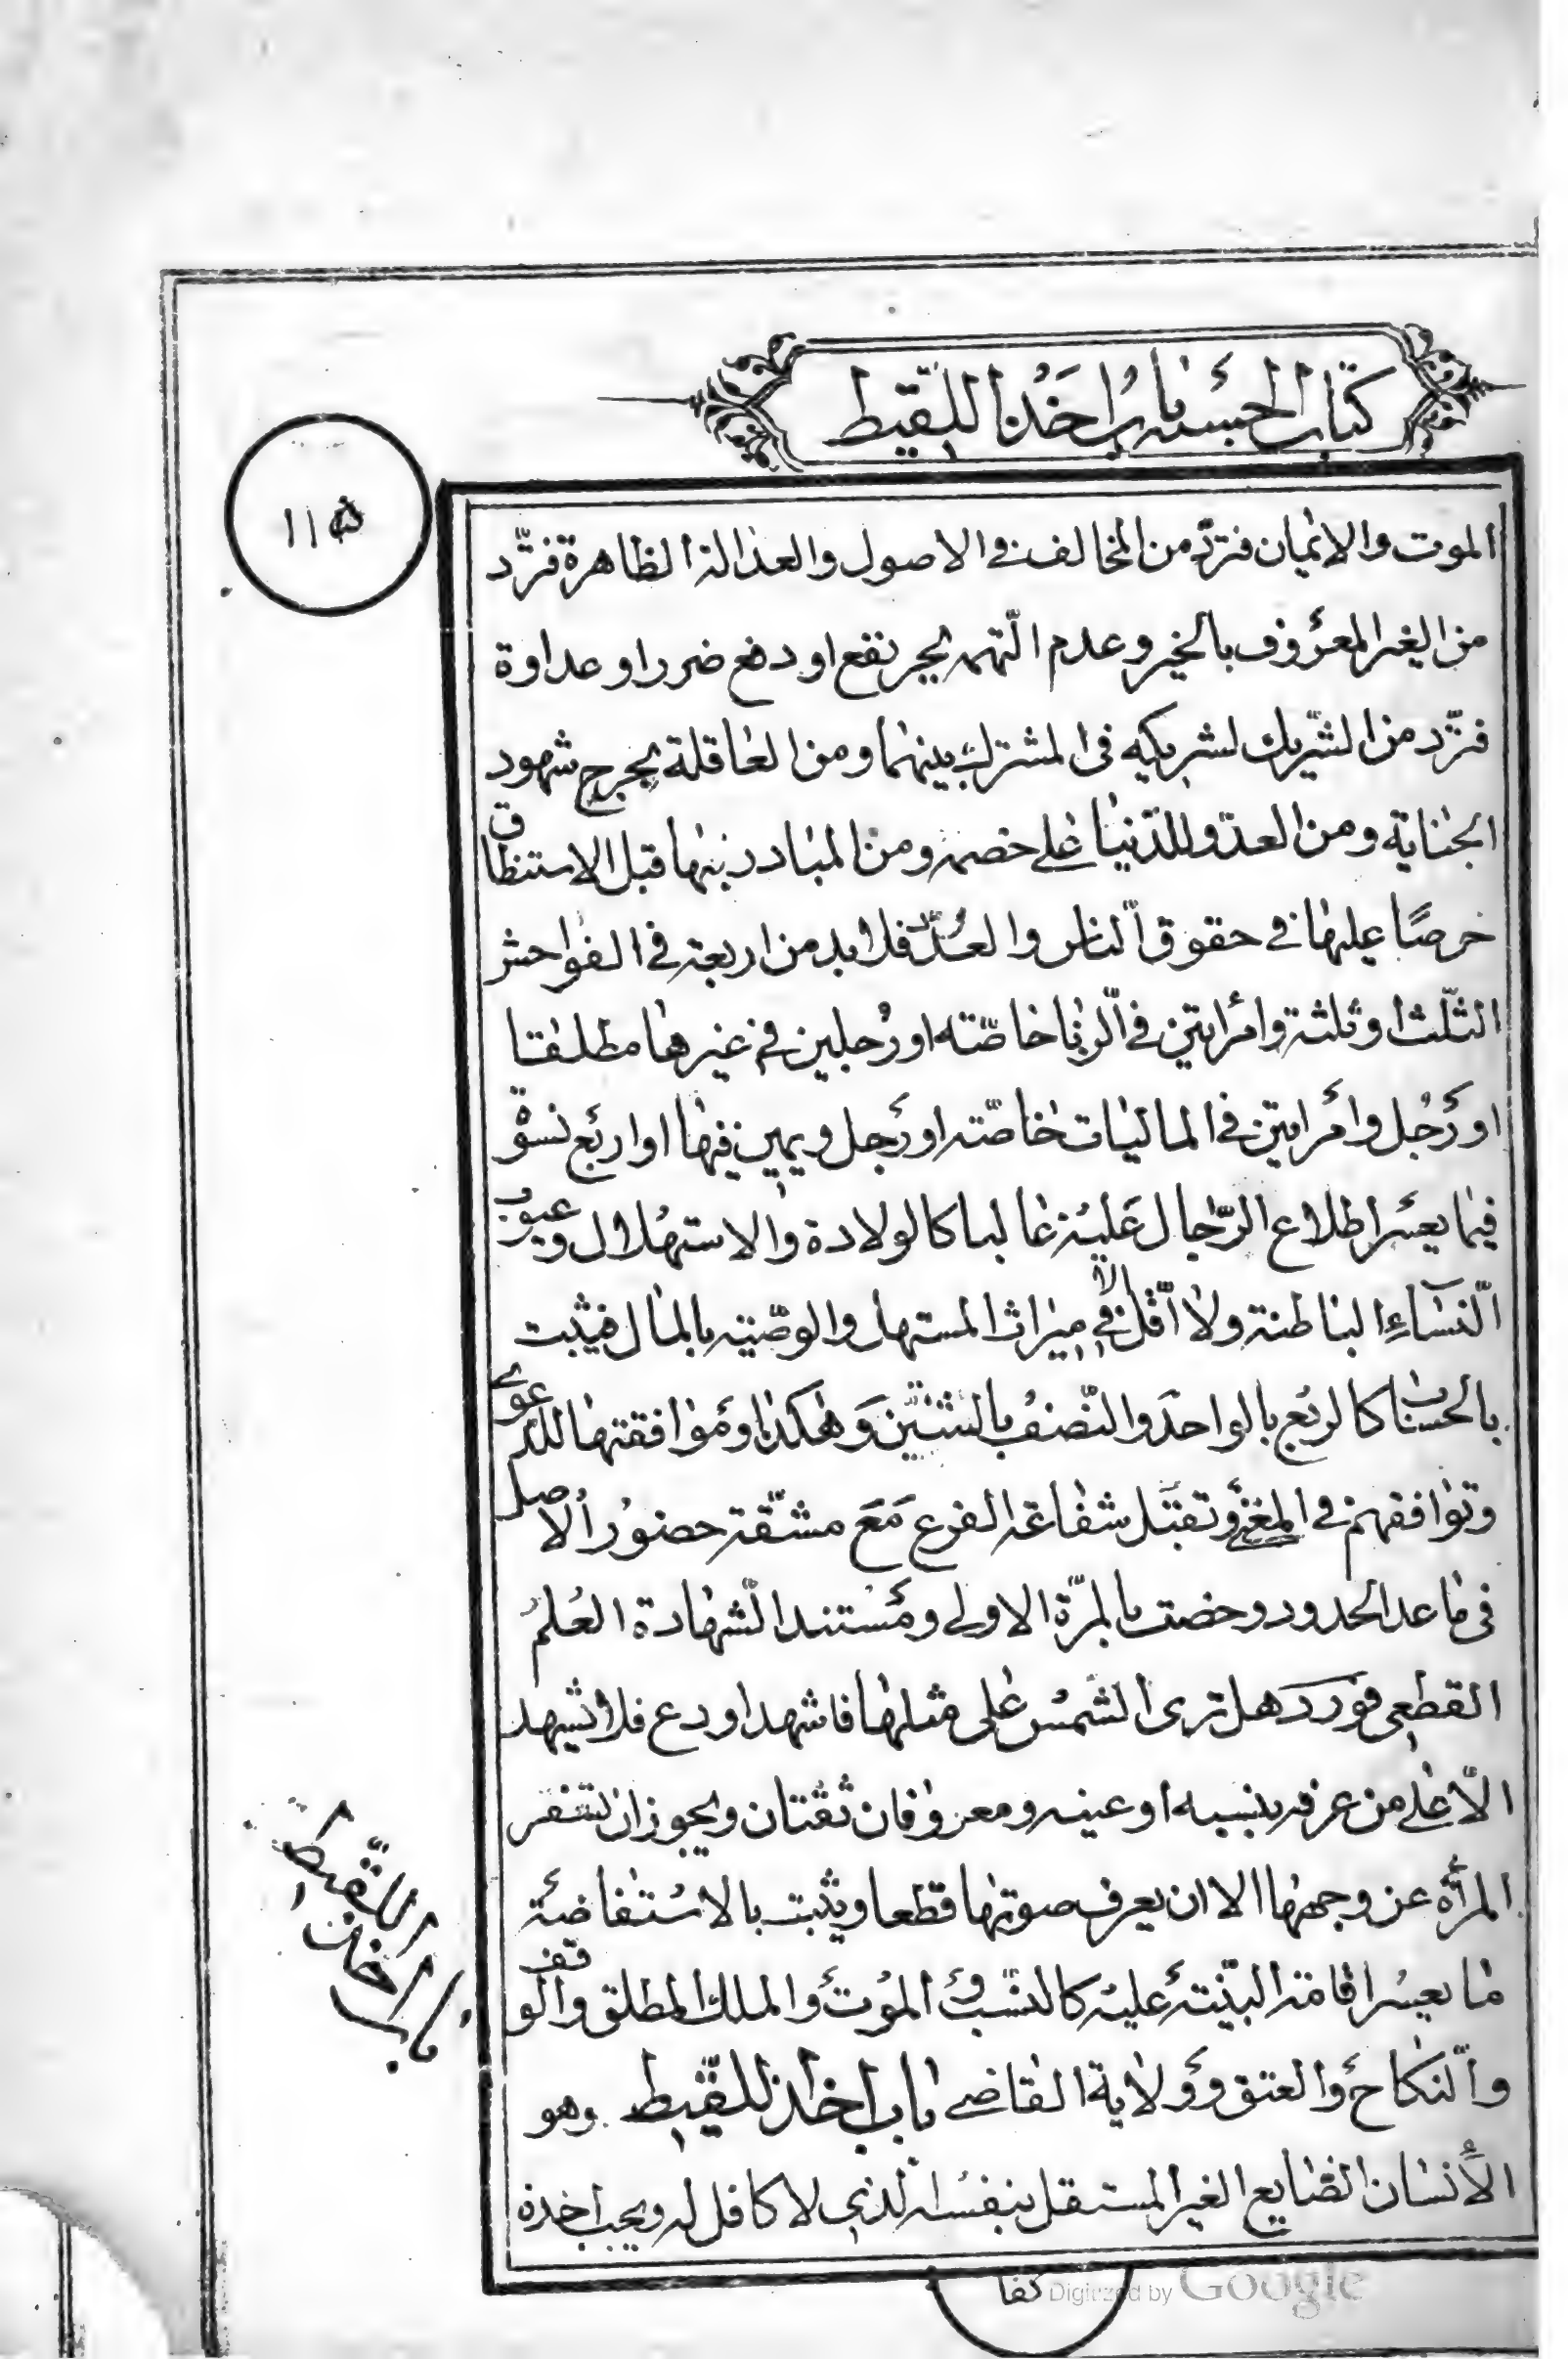 كتاب الحسبة باب اخذ اللقيط
١١٥
الموت والايمان فترد من المخالف في الاصول والعدالة الظاهرة فترد
من الغير المعروف بالخير وعدم التهمة بجر نفع او دفع ضرر او عداوة
فترد من الشريك لشريكه فى المشترك بينهما ومن العاقلة بجرح شهود
الجناية ومن العدو للدنيا على خصمه ومن المبادر بها قبل الاستنطاق
حرصا عليها في حقوق الناس والعدد فلابد من اربعة في الفواحش
الثلث او ثلثة وامراتين في الزنا خاصة او رجلين في غيرها مطلقا
او رجل وامراتين في الماليات خاصة او رجل ويمين فيها او اربع نسوة
فيما يعسر اطلاع الرجال عليه غالبا كالولادة والاستهلال وعيوب
النساء الباطنة ولا اقل الا في ميراث المستهل والوصية بالمال فيثبت
بالحساب كالربع بالواحدة والنصف بالثنتين وهكذا وموافقتها للدعوى
وتوافقهم في المعنى وتقبل شفاعة الفرع مع مشقة حضور الاصل
فى ما عدا الحدود وخصت بالمرة الاولى ومستند الشهادة العلم
القطعى فورد هل ترى الشمس على مثلها فاشهد او دع فلا تشهد
الا على من عرفه بنسبه او عينه ومعروفان ثقتان ويجوز ان تسفر
المرأة عن وجهها الا ان يعرف صوتها قطعا ويثبت بالاستفاضة
ما يعسر اقامة البينة عليه كالنسب والموت والملك المطلق والوقف
والنكاح والعتق وولاية القاضي باب اخذ اللقيط وهو
الانسان الضايع الغير المستقل بنفسه الذي لا كافل له ويجب اخذه
باب اخذ اللقيط
كفا
Digitized by Google